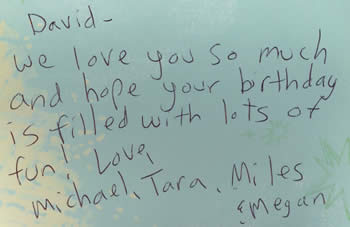 David-
we love you so much
and hope your birthday
is filled with lots of
fun! Love,
Michael, Tara, Miles
& Megan